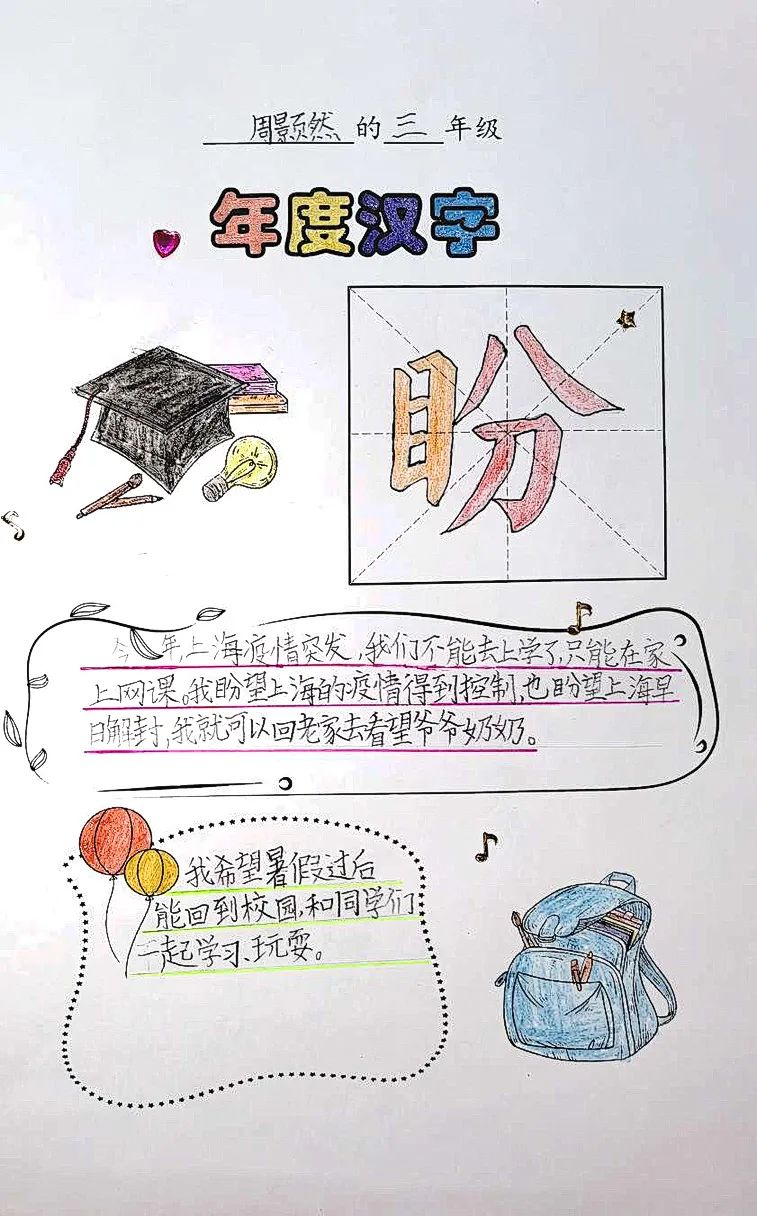 周颢然的三年级
年度汉字
盼
今年上海疫情突发,我们不能去上学了,只能在家
上网课。我盼望上海的疫情得到控制,也盼望上海早
日解封,我就可以回老家去看望爷爷奶奶。
我希望暑假过后
能回到校园,和同学们
一起学习、玩耍。